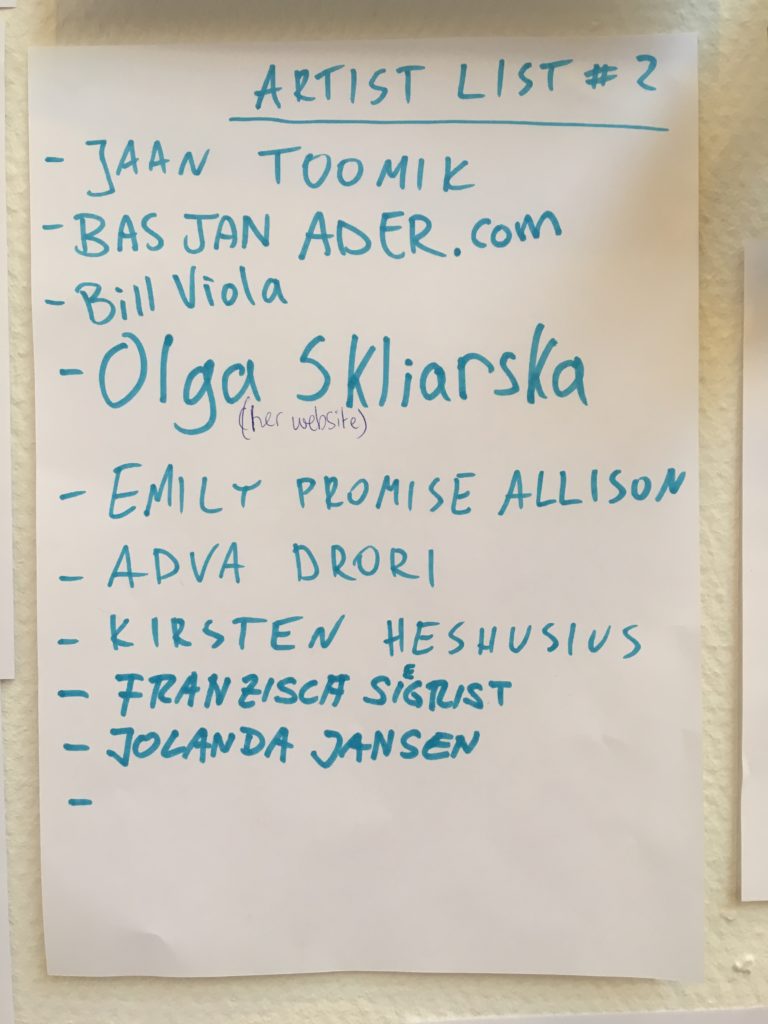 ARTIST LIST #2
- JAAN TOOMIK
- BAS JAN ADER.com
- Bill Viola
- Olga Skliarska
(her website)
- EMILY PROMISE ALLISON
- ADVA DRORI
- KIRSTEN HESHUSIUS
- FRANZISCA SIEGRIST
- JOLANDA JANSEN
-